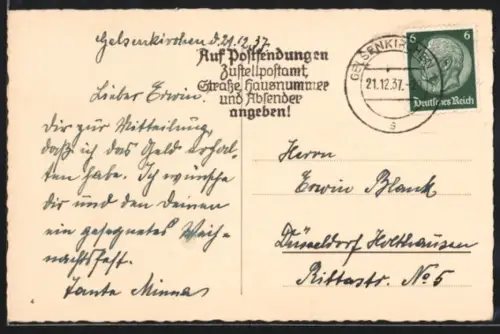 Gelsenkirchen d. 21.12.37.
Auf Postsendungen
Zustellpostamt,
Straße, Hausnummer
und Absender
angeben!
GELSENKIRCHEN
21.12.37.
s
6 6
Deutsches Reich
Lieber Erwin!
Dir zur Mitteilung,
daß ich das Geld erhal-
ten habe. Ich wünsche
dir und den deinen
ein gesegnetes Weih-
nachtsfest.
Tante Minna
Herrn
Erwin Blank
Düsseldorf Holthausen
Rittastr. No 5